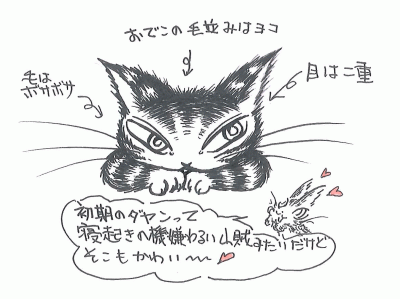 おでこの毛並みはヨコ
毛は
ボサボサ
目は二重
初期のダヤンって
寝起きの機嫌わるい山賊みたいだけど
そこもかわい〜